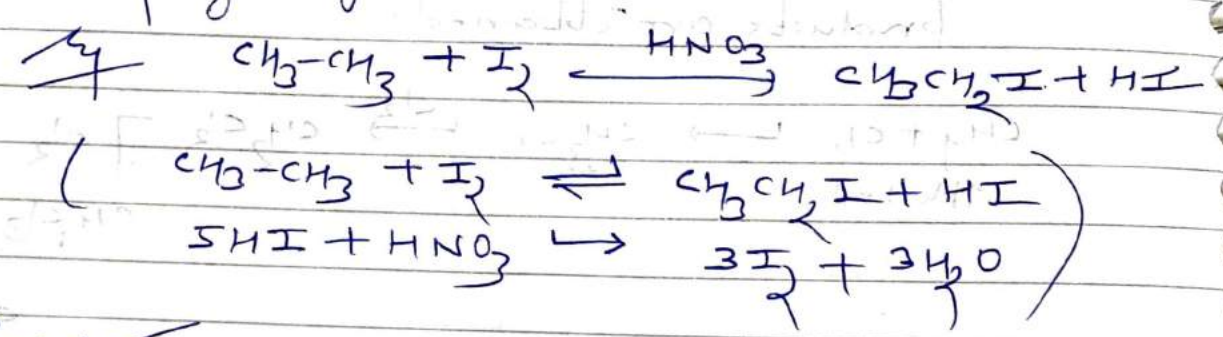 CH₃-CH₃ + I₂ ⟷ HNO₃ CH₃CH₂I + HI
( CH₃-CH₃ + I₂ ⇌ CH₃CH₂I + HI
5HI + HNO₃ → 3I₂ + 3H₂O )